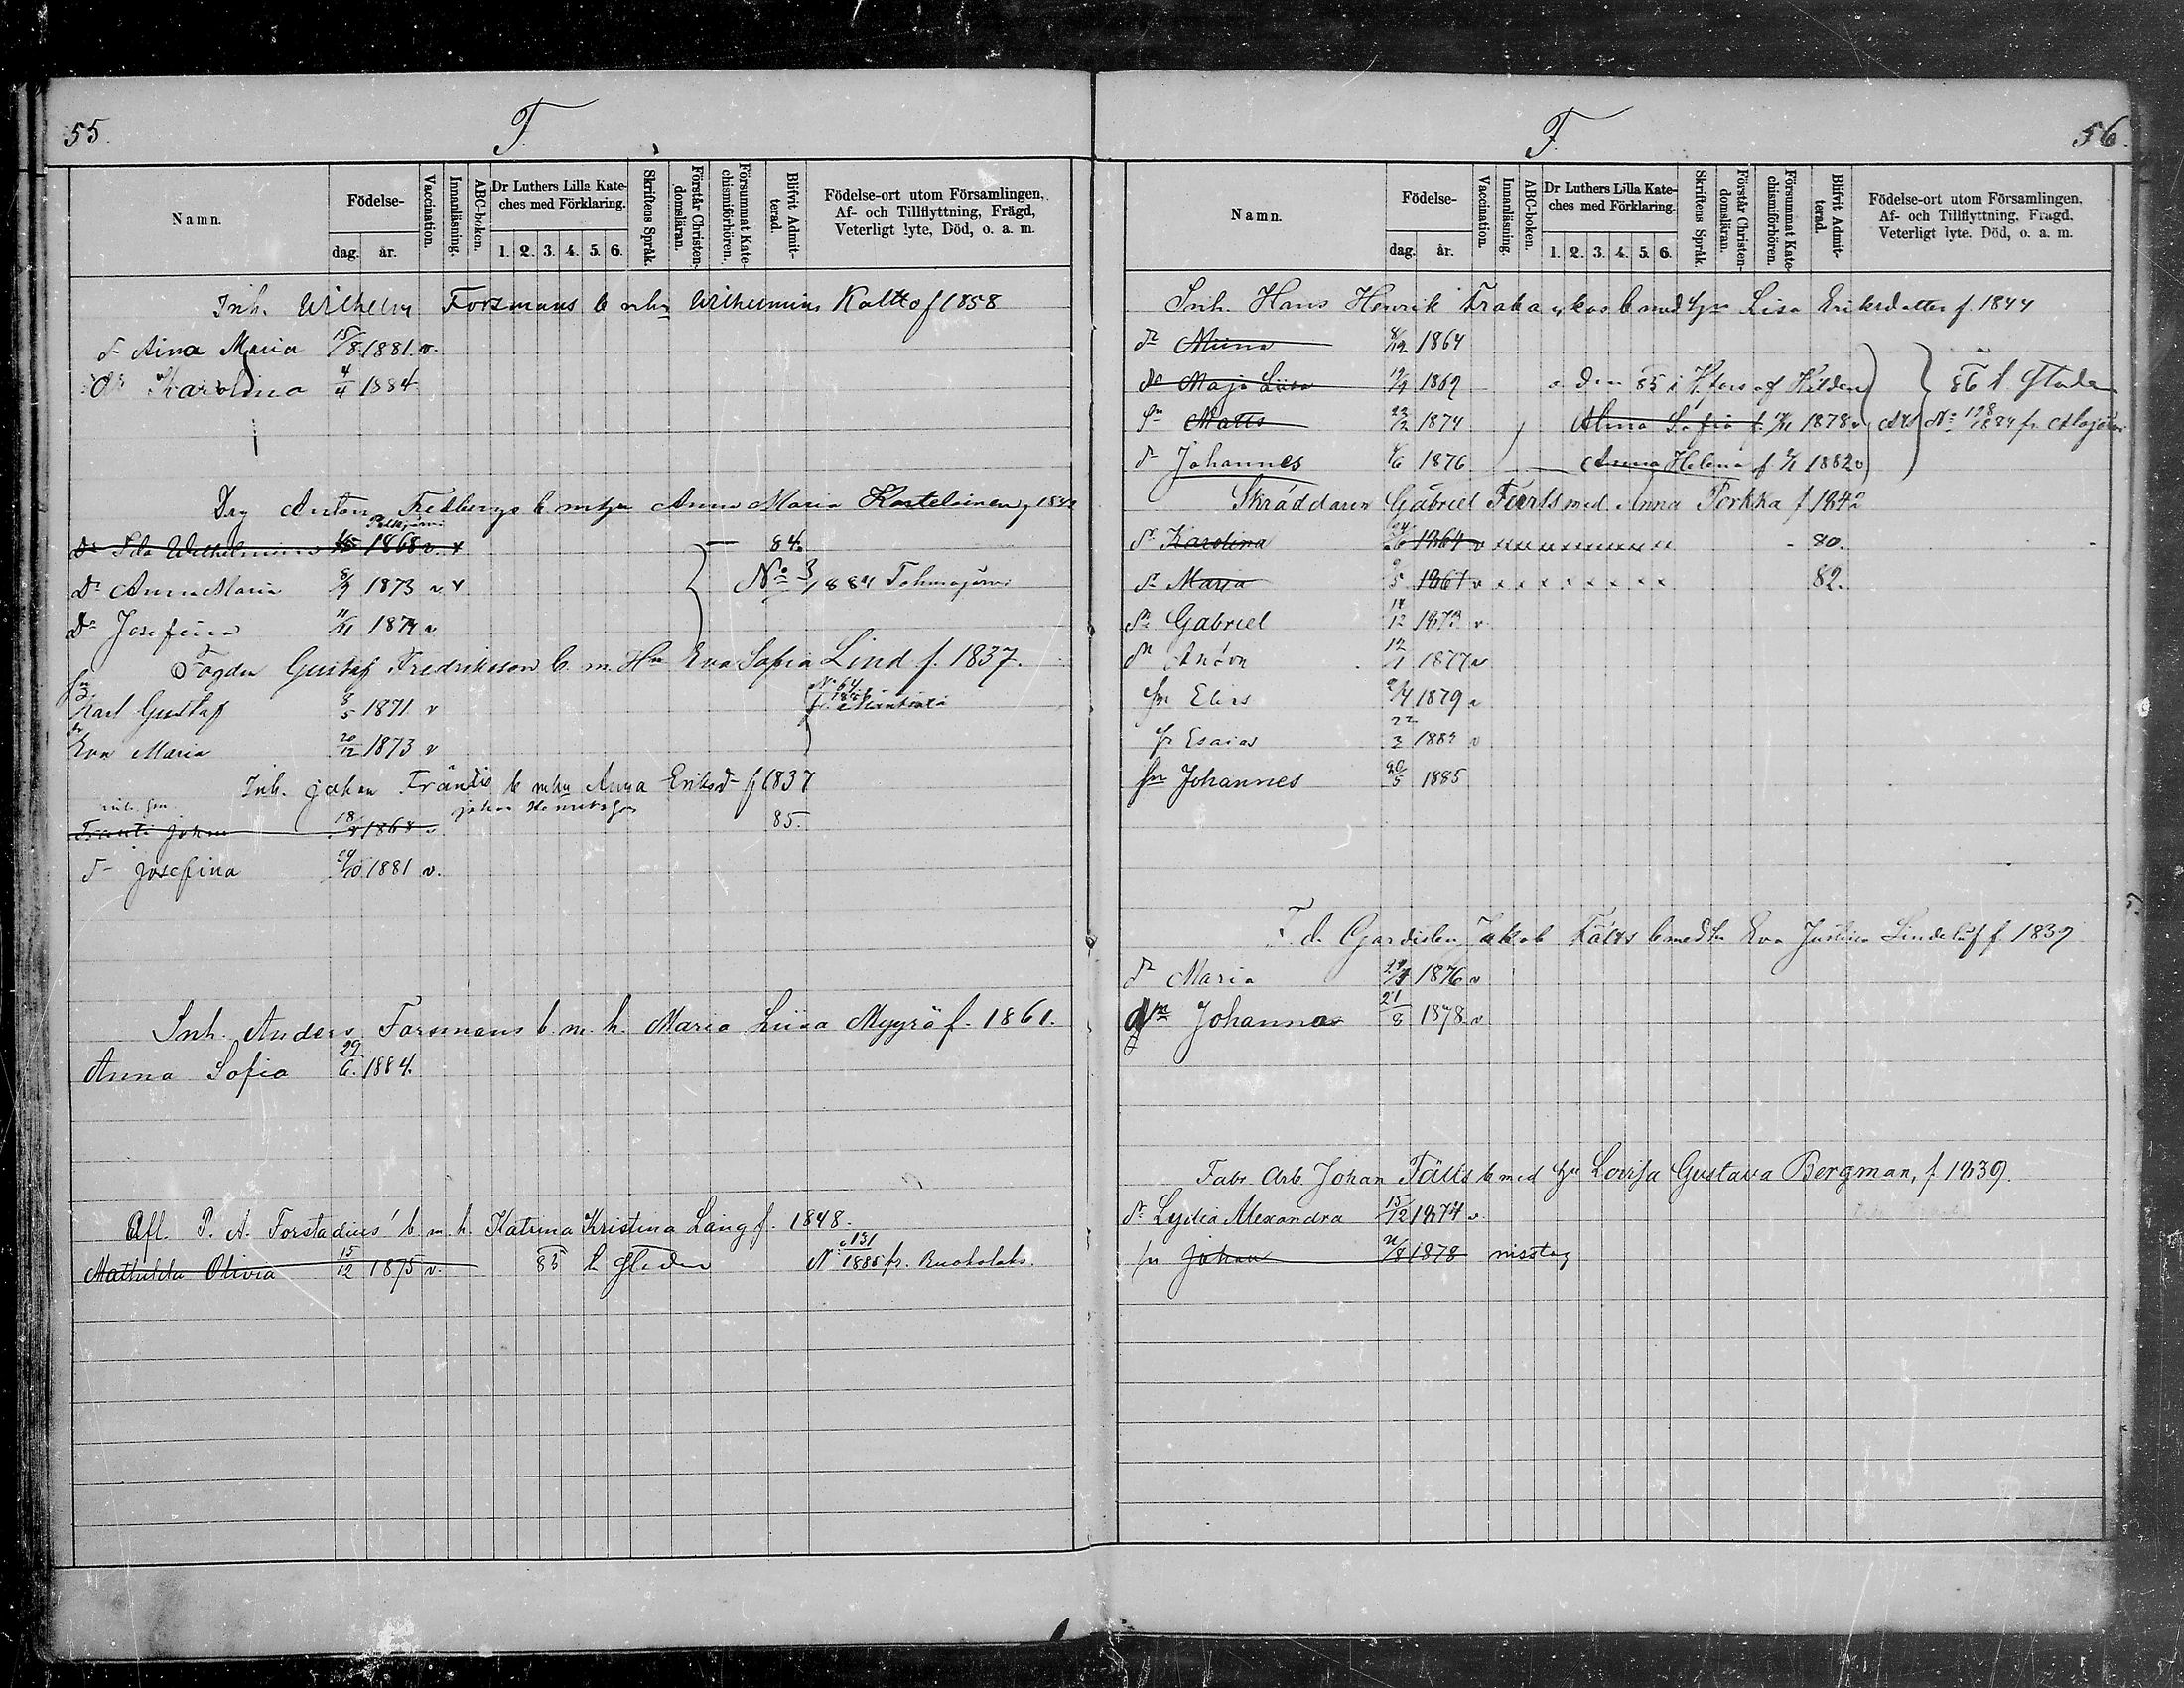 55.
F.
Namn.
Födelse-
dag.
år.
Vaccination.
Innanläsning.
ABC-boken.
Dr Luthers Lilla Kate-
ches med Förklaring.
1. 2. 3. 4. 5. 6.
Skriftens Språk.
Förstår Christen-
domsläran.
Försummat Kate-
chismiförhören.
Blifvit Admit-
terad.
Födelse-ort utom Församlingen,
Af- och Tillflyttning, Frägd,
Veterligt lyte, Död, o. a. m.
Inh. Wilhelm Forsmans b mhu Wilhelmina Koltto f 1858
d- Aina Maria 15/8 1881. v.
dr Karolina 4/4 1884
Anton Fredbergs b mhu Anna Maria Kostelainen
dr Ida Wilhelmina 1868 v. x 84.
Dr Anna Maria 8/9 1873 v x No 3/1884 Tohmajärvi
Dr Josefina 11/11 1874 v
Fogden Gustaf Fredriksson b. m. Hu Eva Sofia Lind f. 1837.
sn
Karl Gustaf 8/5 1871 v
dr
Eva Maria 20/12 1873 v
Inh. Johan Fränti b mhu Anna Eriksd- f 1837
Fränti Johan 18/8 1868 v 85.
d- Josefina 24/10 1881 v.
Inh. Anders Forsmans b. m. h. Maria Liina Myyrä f. 1861.
Anna Sofia 29/6. 1884.
Afl. P. A. Forstadius' b. m. h. Katrina Kristina Lang f. 1848.
Mathilda Olivia 15/12 1875 v. 85 No 131/1885 fr. Ruokolaks
F.
56.
Namn.
Födelse-
dag.
år.
Vaccination.
Innanläsning.
ABC-boken.
Dr Luthers Lilla Kate-
ches med Förklaring.
1. 2. 3. 4. 5. 6.
Skriftens Språk.
Förstår Christen-
domsläran.
Försummat Kate-
chismiförhören.
Blifvit Admit-
terad.
Födelse-ort utom Församlingen,
Af- och Tillflyttning, Frägd,
Veterligt lyte, Död, o. a. m.
Inh. Hans Henrik b med hu Lisa Eriksdotter f. 1844
dr Miina 8/12 1864
dr Maja Liisa 1869
sn Matts 23/2 1874 Alma Sofia f. 1878 v
d- Johannes 1876 Anna Helena f. 1882 v
Skräddaren Gabriel Fäärts med Anna Torkka f 1842
dr Karolina 1864 v x x x x x x x x x 80.
dr Maria 9/5 1867 v x x x x x x x x 82.
sn Gabriel 14/12 1873 v.
sn Anton 12/1 1877 v
sn Elias 1879 v
sn Esaias 22/3 1884 v
sn Johannes 20/5 1885
F. d. Gardisten Jakob Fälts b med hu Eva Justina Lindelöf f 1839
dr Maria 1876 v
Johanna 21/8 1878. v
Fabr. Arb. Johan Fälts b med hu Lovisa Gustava Bergman, f 1839.
dr Lydia Alexandra 15/12 1874 v.
sn Johan 1878 misstag